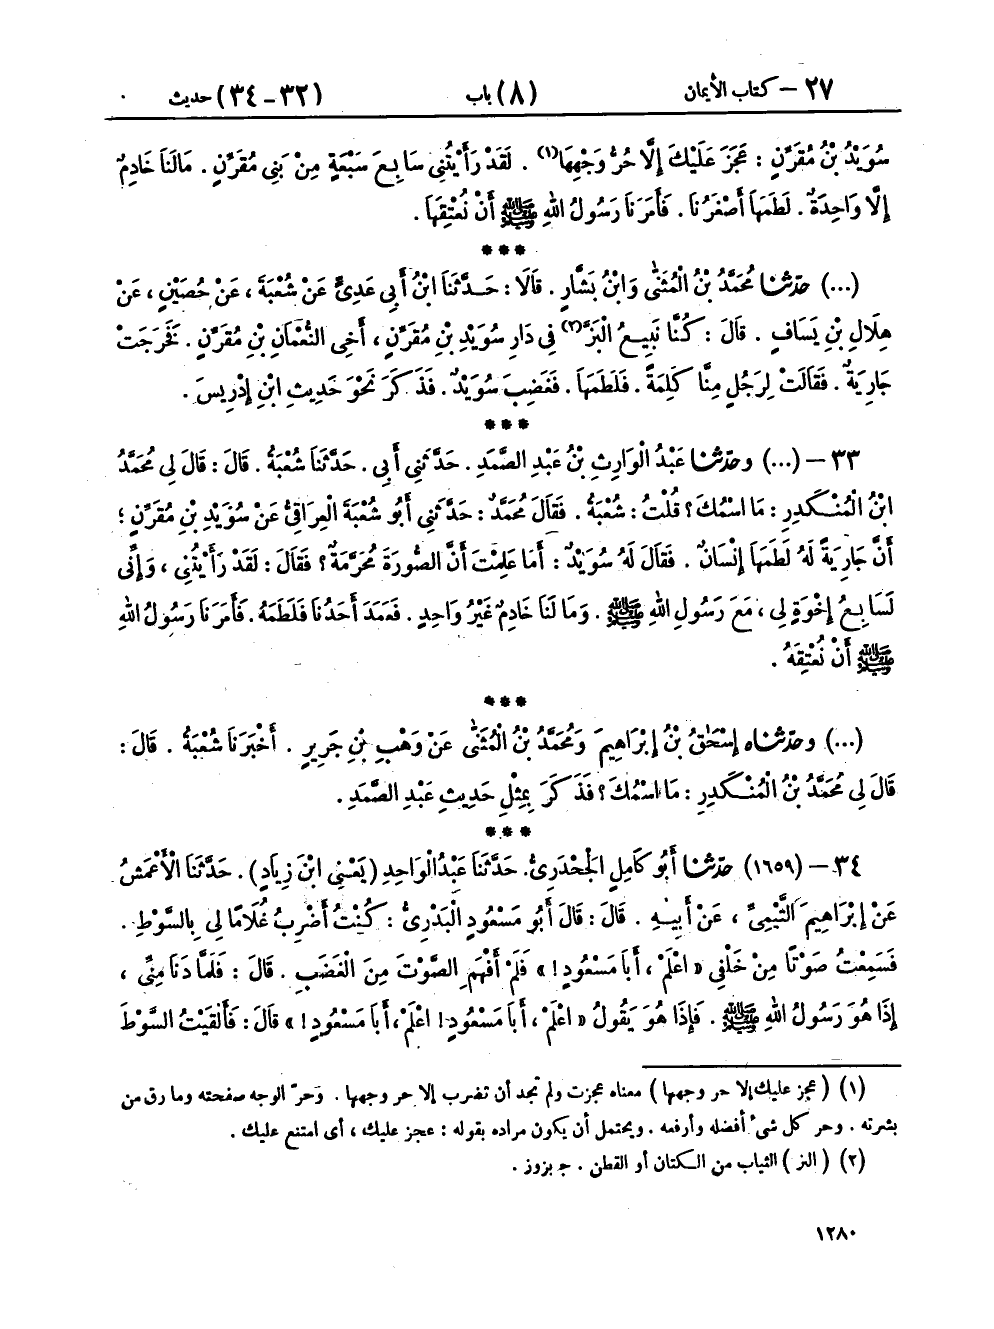 ٢٧ – كتاب الأيمان (٨) باب (٣٢-٣٤) حديث
سُوَيْدُ بْنُ مُقَرِّنٍ : عَجَزَ عَلَيْكَ إِلَّا حُرُّ وَجْهِهَا(١) . لَقَدْ رَأَيْتُنِي سَابِعَ سَبْعَةٍ مِنْ بَنِي مُقَرِّنٍ . مَالَنَا خَادِمٌ
إِلَّا وَاحِدَةٌ . لَطَمَهَا أَصْغَرُنَا . فَأَمَرَنَا رَسُولُ اللهِ ﷺ أَنْ نُعْتِقَهَا .
***
(...) حدّثنا مُحَمَّدُ بْنُ الْمُثَنَّى وَابْنُ بَشَّارٍ . قَالَا : حَدَّثَنَا ابْنُ أَبِي عَدِيٍّ عَنْ شُعْبَةَ ، عَنْ حُصَيْنٍ ، عَنْ
هِلَالِ بْنِ يَسَافٍ . قَالَ : كُنَّا نَبِيعُ الْبَزَّ(٢) فِي دَارِ سُوَيْدِ بْنِ مُقَرِّنٍ ، أَخِي النُّعْمَانِ بْنِ مُقَرِّنٍ . فَخَرَجَتْ
جَارِيَةٌ . فَقَالَتْ لِرَجُلٍ مِنَّا كَلِمَةً . فَلَطَمَهَا . فَغَضِبَ سُوَيْدٌ . فَذَكَرَ نَحْوَ حَدِيثِ ابْنِ إِدْرِيسَ .
***
٣٣ – (...) وحدّثنا عَبْدُ الْوَارِثِ بْنُ عَبْدِ الصَّمَدِ . حَدَّثَنِي أَبِي . حَدَّثَنَا شُعْبَةُ . قَالَ : قَالَ لِي مُحَمَّدُ
ابْنُ الْمُنْكَدِرِ : مَا اسْمُكَ ؟ قُلْتُ : شُعْبَةُ . فَقَالَ مُحَمَّدٌ : حَدَّثَنِي أَبُو شُعْبَةَ الْعِرَاقِيُّ عَنْ سُوَيْدِ بْنِ مُقَرِّنٍ ؛
أَنَّ جَارِيَةً لَهُ لَطَمَهَا إِنْسَانٌ . فَقَالَ لَهُ سُوَيْدٌ : أَمَا عَلِمْتَ أَنَّ الصُّورَةَ مُحَرَّمَةٌ ؟ فَقَالَ : لَقَدْ رَأَيْتُنِي ، وَإِنِّي
لَسَابِعُ إِخْوَةٍ لِي ، مَعَ رَسُولِ اللهِ ﷺ . وَمَا لَنَا خَادِمٌ غَيْرُ وَاحِدٍ . فَعَمَدَ أَحَدُنَا فَلَطَمَهُ . فَأَمَرَنَا رَسُولُ اللهِ
ﷺ أَنْ نُعْتِقَهُ .
***
(...) وحدّثناه إِسْحَقُ بْنُ إِبْرَاهِيمَ وَمُحَمَّدُ بْنُ الْمُثَنَّى عَنْ وَهْبِ بْنِ جَرِيرٍ . أَخْبَرَنَا شُعْبَةُ . قَالَ :
قَالَ لِي مُحَمَّدُ بْنُ الْمُنْكَدِرِ : مَا اسْمُكَ ؟ فَذَكَرَ بِمِثْلِ حَدِيثِ عَبْدِ الصَّمَدِ .
***
٣٤ – (١٦٥٩) حدّثنا أَبُو كَامِلٍ الْجَحْدَرِيُّ . حَدَّثَنَا عَبْدُ الْوَاحِدِ (يَعْنِي ابْنَ زِيَادٍ) . حَدَّثَنَا الْأَعْمَشُ
عَنْ إِبْرَاهِيمَ التَّيْمِيِّ ، عَنْ أَبِيهِ . قَالَ : قَالَ أَبُو مَسْعُودٍ الْبَدْرِيُّ : كُنْتُ أَضْرِبُ غُلَامًا لِي بِالسَّوْطِ .
فَسَمِعْتُ صَوْتًا مِنْ خَلْفِي « اعْلَمْ ، أَبَا مَسْعُودٍ ! » فَلَمْ أَفْهَمِ الصَّوْتَ مِنَ الْغَضَبِ . قَالَ : فَلَمَّا دَنَا مِنِّي ،
إِذَا هُوَ رَسُولُ اللهِ ﷺ . فَإِذَا هُوَ يَقُولُ « اعْلَمْ ، أَبَا مَسْعُودٍ ! اعْلَمْ ، أَبَا مَسْعُودٍ ! » قَالَ : فَأَلْقَيْتُ السَّوْطَ
(١) ( عجز عليك إلا حر وجهها ) معناه عجزت ولم تجد أن تضرب إلا حر وجهها . وحرّ الوجه صفحته وما رق من
بشرته . وحر كل شئ أفضله وأرفعه . ويحتمل أن يكون مراده بقوله : عجز عليك ، أى امتنع عليك .
(٢) ( البز ) الثياب من الكتان أو القطن . ج بزوز .
١٢٨٠